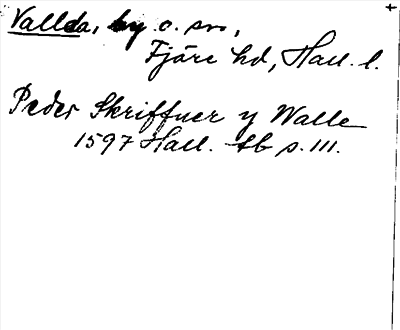 Vallda, by o. sn,
Fjäre hd, Hall. l.
Peder Skriffuer y Walle
1597 Hall. tb s. 111.